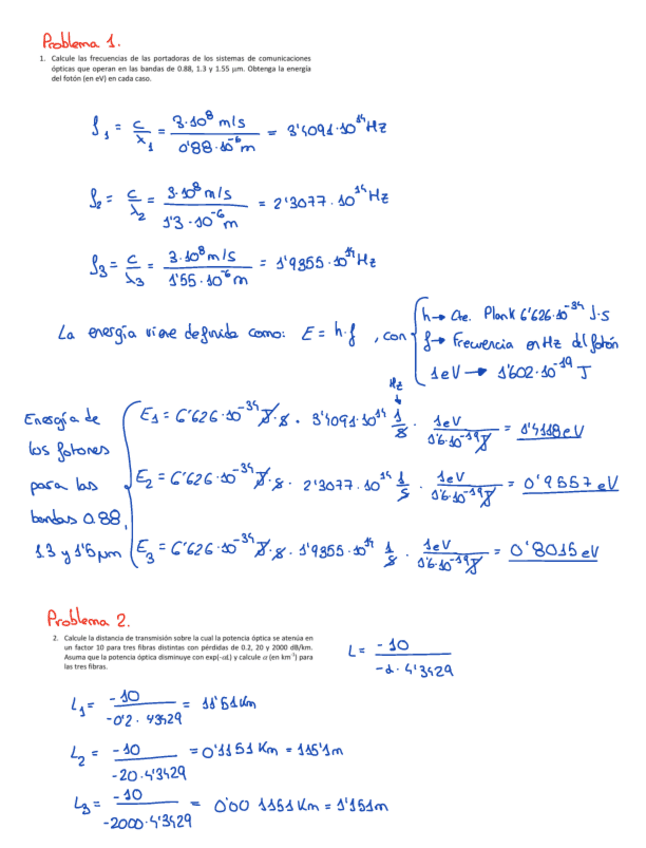 Problema 1.
1. Calcule las frecuencias de las portadoras de los sistemas de comunicaciones
ópticas que operan en las bandas de 0.88, 1.3 y 1.55 μm. Obtenga la energía
del fotón (en eV) en cada caso.
f₁ = c/λ₁ = 3·10⁸ m/s / 0'88·10⁻⁶ m = 3'4091·10¹⁴ Hz
f₂ = c/λ₂ = 3·10⁸ m/s / 1'3·10⁻⁶ m = 2'3077·10¹⁴ Hz
f₃ = c/λ₃ = 3·10⁸ m/s / 1'55·10⁻⁶ m = 1'9355·10¹⁴ Hz
La energía viene definida como: E = h·f, con
h → Cte. Plank 6'626·10⁻³⁴ J·s
f → Frecuencia en Hz del fotón
1eV → 1'602·10⁻¹⁹ J
Energía de
los fotones
para las
bandas 0.88,
1.3 y 1'5 μm
Hz
E₁ = 6'626·10⁻³⁴ J·s · 3'4091·10¹⁴ 1/s · 1eV / 1'6·10⁻¹⁹ J = 1'4118 eV
E₂ = 6'626·10⁻³⁴ J·s · 2'3077·10¹⁴ 1/s · 1eV / 1'6·10⁻¹⁹ J = 0'9557 eV
E₃ = 6'626·10⁻³⁴ J·s · 1'9355·10¹⁴ 1/s · 1eV / 1'6·10⁻¹⁹ J = 0'8015 eV
Problema 2.
2. Calcule la distancia de transmisión sobre la cual la potencia óptica se atenúa en
un factor 10 para tres fibras distintas con pérdidas de 0.2, 20 y 2000 dB/km.
Asuma que la potencia óptica disminuye con exp(-αL) y calcule α (en km⁻¹) para
las tres fibras.
L = -10 / -α·4'3429
L₁ = -10 / -0'2·43429 = 11'51 Km
L₂ = -10 / -20·4'3429 = 0'1151 Km = 115'1m
L₃ = -10 / -2000·4'3429 = 0'00 1151 Km = 1'151m